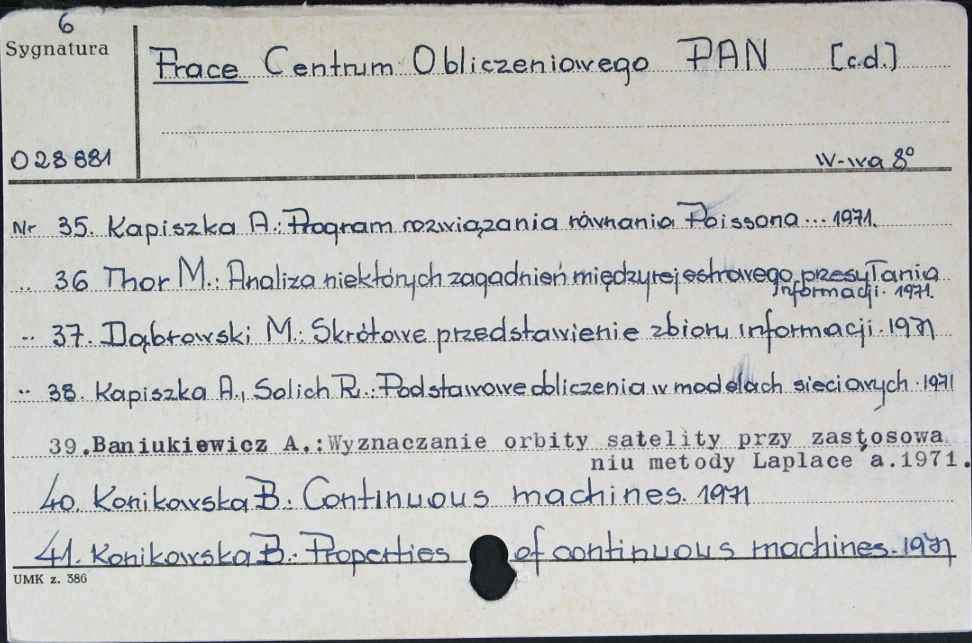 6
Sygnatura
Prace Centrum Obliczeniowego PAN [c.d.]
028681
W-wa 8°
Nr 35. Kapiszka A.: Program rozwiązania równania Poissona ... 1971.
.. 36 Thor M.: Analiza niektórych zagadnień międzyrejestrowego przesyłania
informacji. 1971.
.. 37. Dąbrowski M.: Skrótowe przedstawienie zbioru informacji. 1971
.. 38. Kapiszka A., Solich R.: Podstawowe obliczenia w modelach sieciowych. 1971
39. Baniukiewicz A.: Wyznaczanie orbity satelity przy zastosowa
niu metody Laplace'a. 1971.
40. Konikowska B. Continuous machines. 1971
41. Konikowska B. Properties of continuous machines. 1971
UMK z. 386